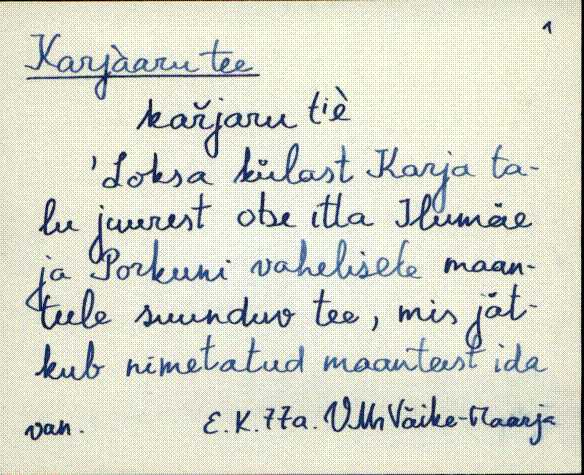 1
Karjaaru tee
kaŕjaru tiè
'Loksa külast Karja ta-
lu juurest otse itta Ilumäe
ja Porkuni vahelisele maan-
teele suunduv tee, mis jät-
kub nimetatud maanteest ida
van. E.K. 77a. VMr Väike-Maarja